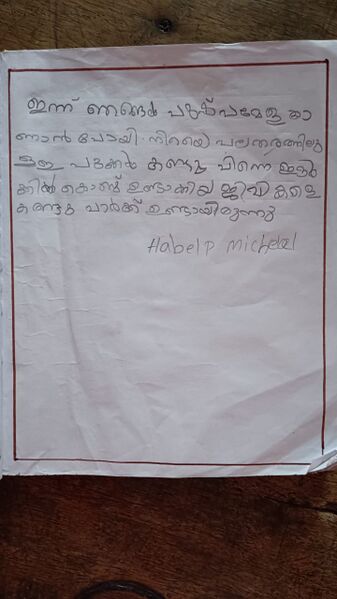 ഇന്ന് ഞങ്ങൾ പുഷ്പമേള കാ
ണാൻ പോയി. നിറയെ പലതരത്തിലു
ള്ള പൂക്കൾ കണ്ടു പിന്നെ ഈർ
ക്കിൽ കൊണ്ട് ഉണ്ടാക്കിയ ജീവികളെ
കണ്ടു പാർക്ക് ഉണ്ടായിരുന്നു
Habel P Michael